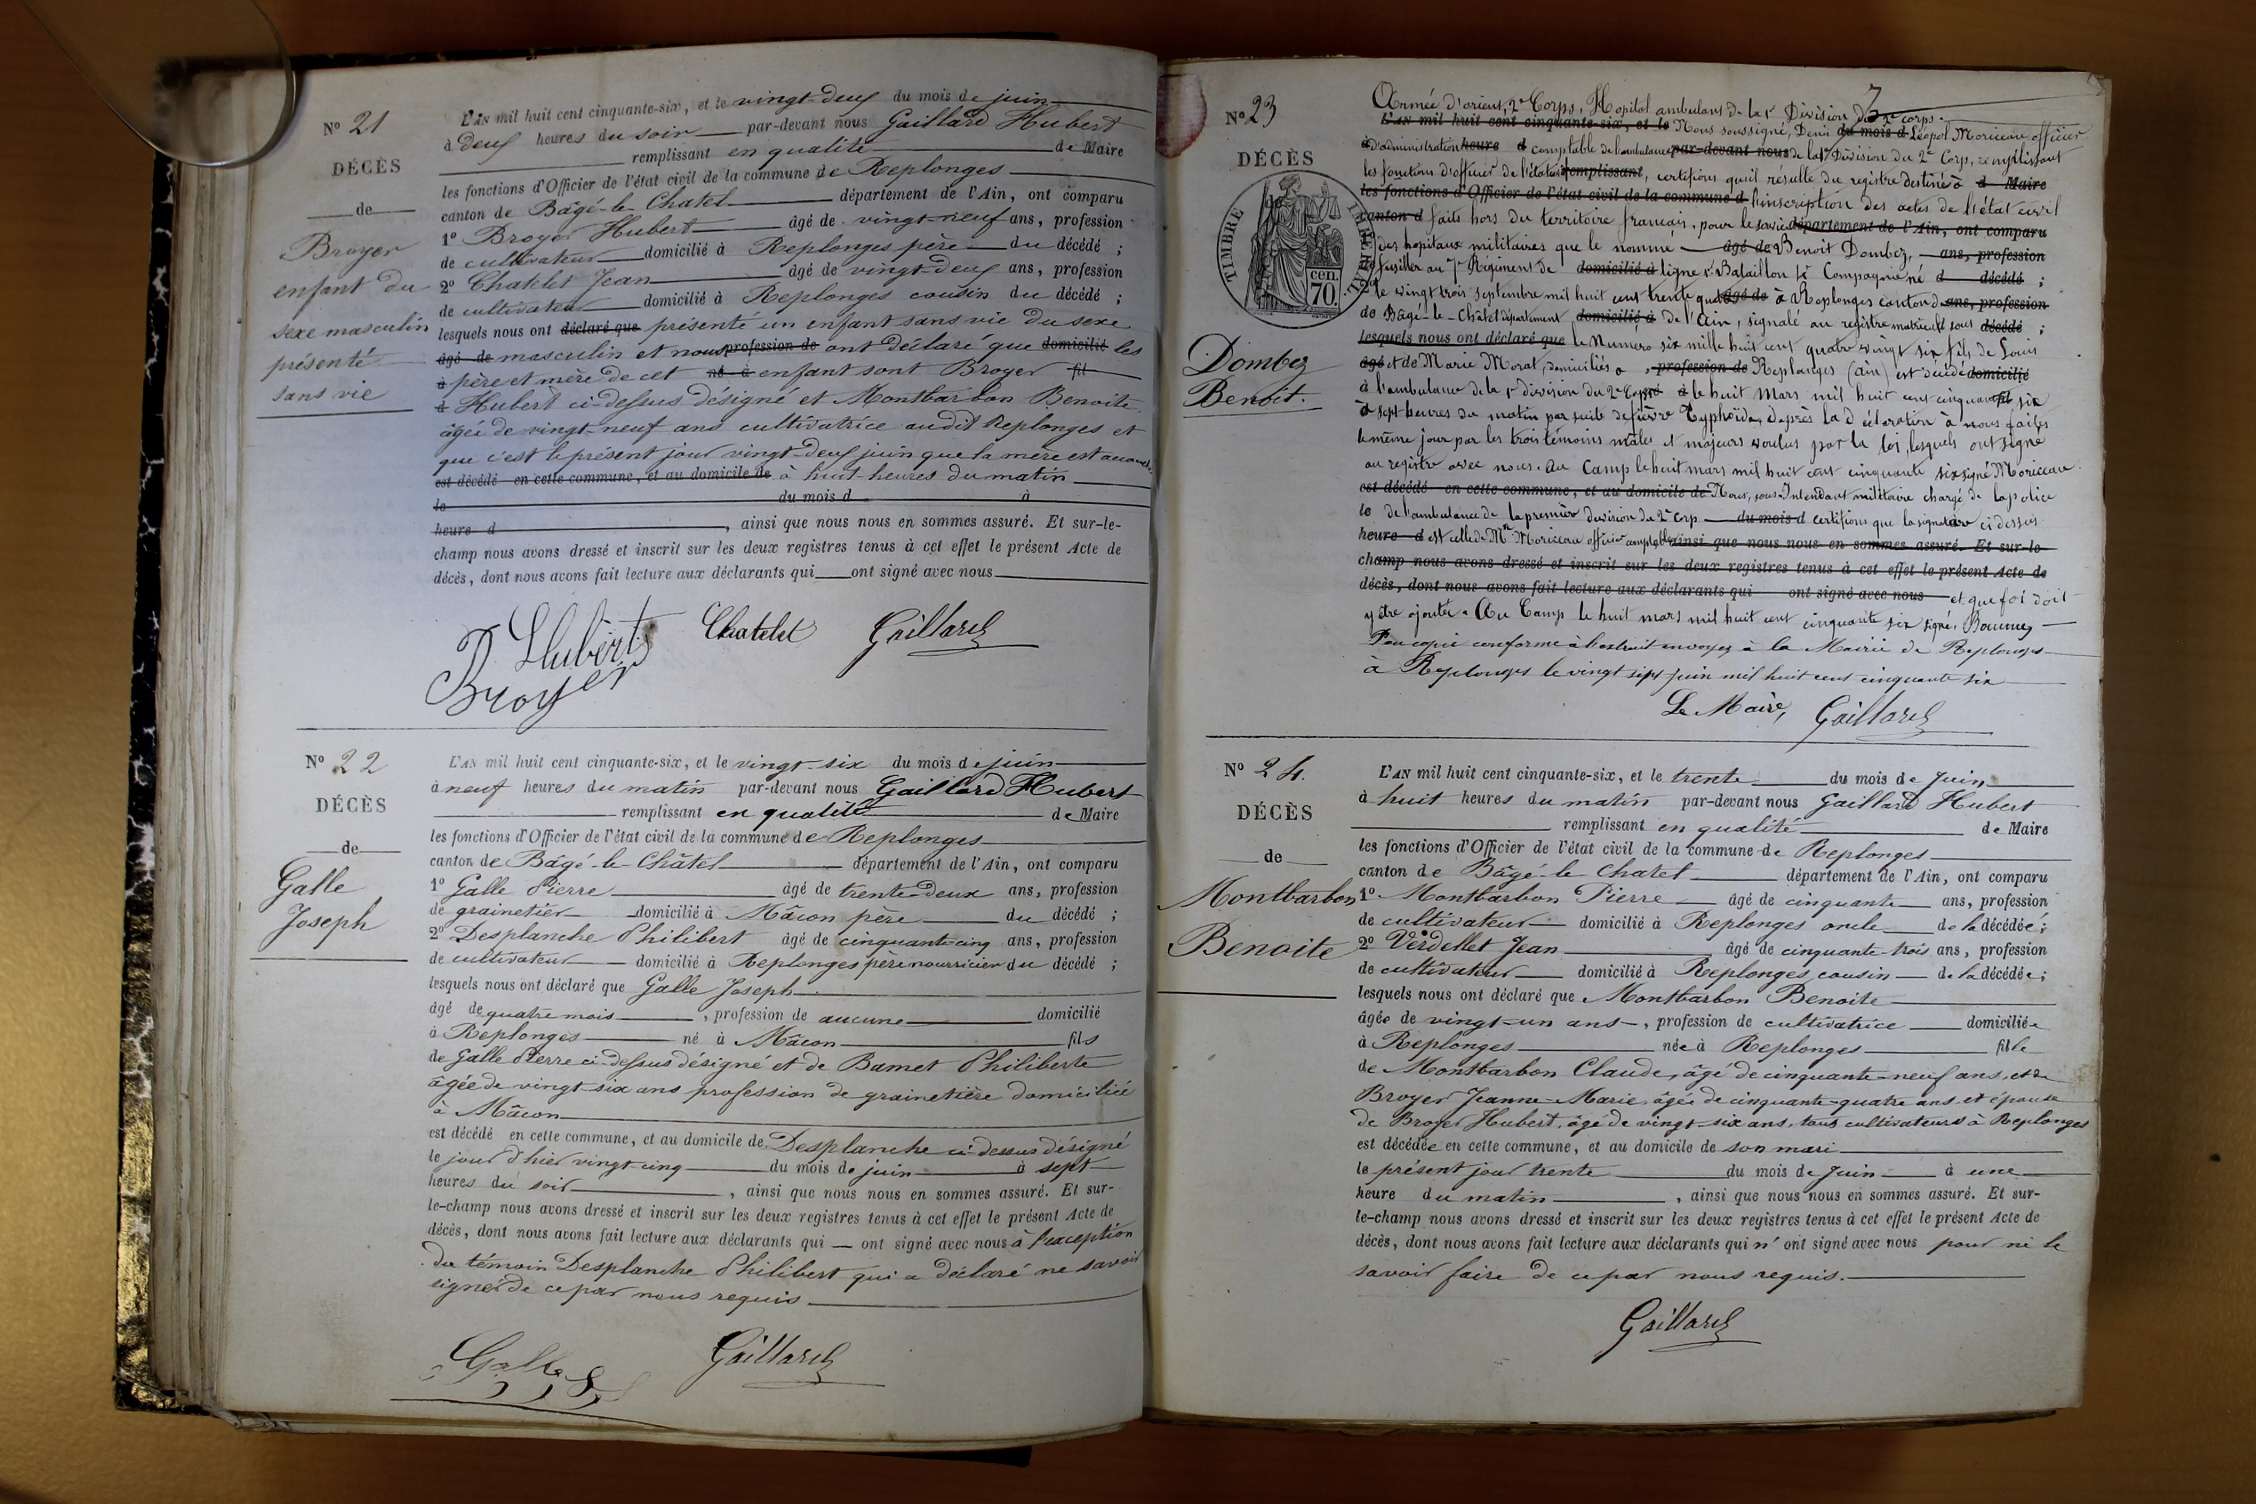 Nº 21
DÉCÈS
de
Broyer
enfant du
sexe masculin
présenté
sans vie
L'AN mil huit cent cinquante-six, et le vingt-deux du mois de juin
à deux heures du soir par-devant nous Gaillard Hubert
remplissant en qualité de Maire
les fonctions d'Officier de l'état civil de la commune de Replonges
canton de Bâgé-le-Chatel département de l'Ain, ont comparu
1º Broyer Hubert âgé de vingt-neuf ans, profession
de cultivateur domicilié à Replonges père du décédé ;
2º Chatelet Jean âgé de vingt-deux ans, profession
de cultivateur domicilié à Replonges cousin du décédé ;
lesquels nous ont déclaré que présenté un enfant sans vie du sexe
âgé de masculin et nous profession de ont déclaré que domicilié les
à père et mère de cet né à enfant sont Broyer fil
d Hubert ci-dessus désigné et Montbarbon Benoite
âgée de vingt-neuf ans cultivatrice audit Replonges et
que c'est le présent jour vingt-deux juin que la mère est accouchée
est décédé en cette commune, et au domicile de à huit heures du matin
le du mois d à
heure d , ainsi que nous nous en sommes assuré. Et sur-le-
champ nous avons dressé et inscrit sur les deux registres tenus à cet effet le présent Acte de
décès, dont nous avons fait lecture aux déclarants qui ont signé avec nous
Hubert Chatelet Gaillard
Broyer
Nº 22
DÉCÈS
de
Galle
Joseph
L'AN mil huit cent cinquante-six, et le vingt-six du mois de juin
à neuf heures du matin par-devant nous Gaillard Hubert
remplissant en qualité de Maire
les fonctions d'Officier de l'état civil de la commune de Replonges
canton de Bâgé-le-Châtel département de l'Ain, ont comparu
1º Galle Pierre âgé de trente-deux ans, profession
de grainetier domicilié à Mâcon père du décédé ;
2º Desplanche Philibert âgé de cinquante-cinq ans, profession
de cultivateur domicilié à Replonges père nourricier du décédé ;
lesquels nous ont déclaré que Galle Joseph
âgé de quatre mois , profession de aucune domicilié
à Replonges né à Mâcon fils
de Galle Pierre ci-dessus désigné et de Bamet Philiberte
âgée de vingt-six ans profession de grainetière domiciliée
à Mâcon
est décédé en cette commune, et au domicile de Desplanche ci-dessus désigné
le jour d'hier vingt-cinq du mois de juin à sept
heures du soir , ainsi que nous nous en sommes assuré. Et sur-
le-champ nous avons dressé et inscrit sur les deux registres tenus à cet effet le présent Acte de
décès, dont nous avons fait lecture aux déclarants qui ont signé avec nous à l'exception
du témoin Desplanche Philibert qui a déclaré ne savoir
signer de ce par nous requis
Galle Gaillard
Nº 23
DÉCÈS
de
TIMBRE IMPERIAL
cen.
70.
Dombez
Benoit.
Armée d'orient, 2e Corps, Hopital ambulant de la 1e Division du 2e corps.
L'AN mil huit cent cinquante-six, et le Nous soussigné, Denis du mois d Léopol Moriceau officier
à d'administration heure d comptable de l'ambulance par-devant nous de la 1e Division du 2e Corps, remplissant
les fonctions d'officier de l'état civil remplissant, certifions qu'il résulte du registre destiné à d Maire
les fonctions d'Officier de l'état civil de la commune d l'inscription des actes de l'état civil
canton d faits hors du territoire français, pour le service département de l'Ain, ont comparu
des hopitaux militaires que le nommé âgé de Benoit Dombez, ans, profession
de fusilier au 7e Régiment de domicilié à ligne 1r Bataillon 4e Compagnie né d décédé ;
2º le vingt trois septembre mil huit cent trente quatre âgé de à Replonges canton de ans, profession
de Bâgé-le-Châtel département domicilié à de l'Ain, signalé au registre matricule sous décédé ;
lesquels nous ont déclaré que le Numéro six mille huit cent quatre vingt six fils de Louis
âgé et de Marie Morat, domiciliés à , profession de Replonges (ain) est décédé domicilié
à l'ambulance de la 1e division du 2e Corps né à le huit Mars mil huit cent cinquante fil six
à sept heures du matin par suite de fièvre Typhoïde, d'après la déclaration à nous faite
le même jour par les trois témoins mâles et majeurs voulus par la loi, lesquels ont signé
au registre avec nous. Au Camp le huit mars mil huit cent cinquante six signé Moriceau.
est décédé en cette commune, et au domicile de Nous, sous-Intendant militaire chargé de la police
le de l'ambulance de la première division du 2e Corp du mois d certifions que la signature ci dessus
heure d est celle de Mr Moriceau officier comptable ainsi que nous nous en sommes assuré. Et sur-le-
champ nous avons dressé et inscrit sur les deux registres tenus à cet effet le présent Acte de
décès, dont nous avons fait lecture aux déclarants qui ont signé avec nous et que foi doit
y être ajoutée. Au Camp le huit mars mil huit cent cinquante six signé,
Pour copie conforme à l'extrait envoyé à la Mairie de Replonges
à Replonges le vingt sept juin mil huit cent cinquante six
Le Maire, Gaillard
Nº 24.
DÉCÈS
de
Montbarbon
Benoite
L'AN mil huit cent cinquante-six, et le trente du mois de Juin
à huit heures du matin par-devant nous Gaillard Hubert
remplissant en qualité de Maire
les fonctions d'Officier de l'état civil de la commune de Replonges
canton de Bâgé-le Chatel département de l'Ain, ont comparu
1º Montbarbon Pierre âgé de cinquante ans, profession
de cultivateur domicilié à Replonges oncle de la décédée ;
2º Verdellet Jean âgé de cinquante-trois ans, profession
de cultivateur domicilié à Replonges, cousin de la décédée ;
lesquels nous ont déclaré que Montbarbon Benoite
âgée de vingt-un ans , profession de cultivatrice domiciliée
à Replonges née à Replonges fille
de Montbarbon Claude, âgé de cinquante-neuf ans, et de
Broyer Jeanne-Marie, âgée de cinquante-quatre ans et épouse
de Broyer Hubert, âgé de vingt-six ans, tous cultivateurs à Replonges
est décédée en cette commune, et au domicile de son mari
le présent jour trente du mois de Juin à une
heure du matin , ainsi que nous nous en sommes assuré. Et sur-
le-champ nous avons dressé et inscrit sur les deux registres tenus à cet effet le présent Acte de
décès, dont nous avons fait lecture aux déclarants qui n'ont signé avec nous pour ne le
savoir faire de ce par nous requis.
Gaillard